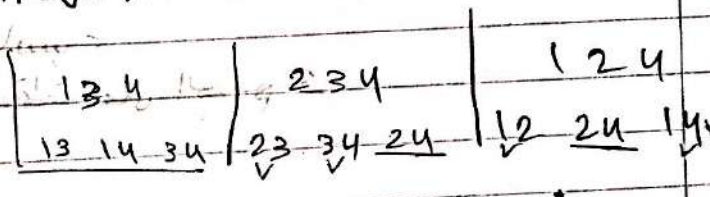 134 | 234 | 124
13 14 34 | 23 34 24 | 12 24 14